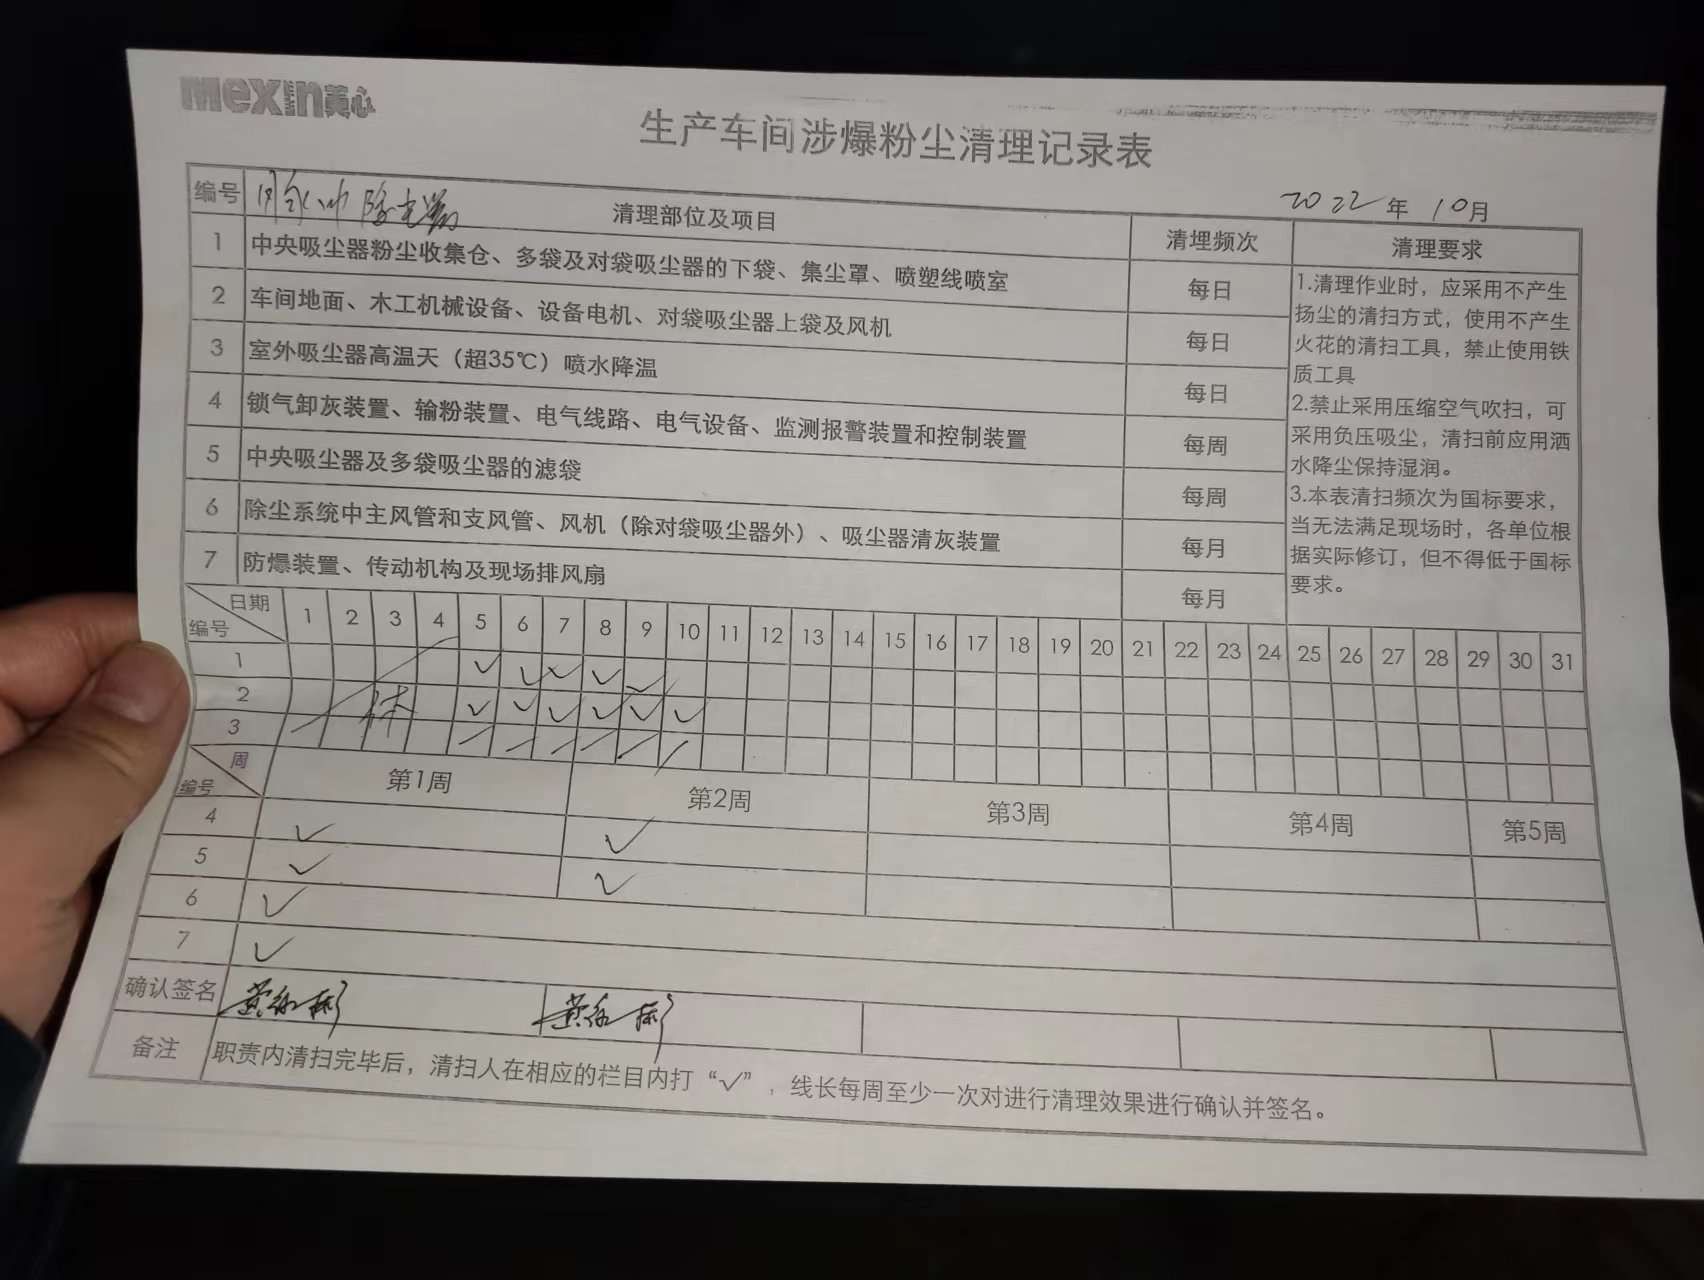 mexin美心
生产车间涉爆粉尘清理记录表
2022年 10月
编号 除尘器 清理部位及项目 清理频次 清理要求
1 中央吸尘器粉尘收集仓、多袋及对袋吸尘器的下袋、集尘罩、喷塑线喷室 每日
2 车间地面、木工机械设备、设备电机、对袋吸尘器上袋及风机 每日
3 室外吸尘器高温天（超35℃）喷水降温 每日
4 锁气卸灰装置、输粉装置、电气线路、电气设备、监测报警装置和控制装置 每周
5 中央吸尘器及多袋吸尘器的滤袋 每周
6 除尘系统中主风管和支风管、风机（除对袋吸尘器外）、吸尘器清灰装置 每月
7 防爆装置、传动机构及现场排风扇 每月
1.清理作业时，应采用不产生
扬尘的清扫方式，使用不产生
火花的清扫工具，禁止使用铁
质工具
2.禁止采用压缩空气吹扫，可
采用负压吸尘，清扫前应用洒
水降尘保持湿润。
3.本表清扫频次为国标要求，
当无法满足现场时，各单位根
据实际修订，但不得低于国标
要求。
日期 编号 1 2 3 4 5 6 7 8 9 10 11 12 13 14 15 16 17 18 19 20 21 22 23 24 25 26 27 28 29 30 31
1 ✓ ✓ ✓ ✓ ✓
2 休 ✓ ✓ ✓ ✓ ✓ ✓
3 / / / / / / /
周 编号 第1周 第2周 第3周 第4周 第5周
4 ✓ ✓
5 ✓ ✓
6 ✓
7 ✓
确认签名
备注 职责内清扫完毕后，清扫人在相应的栏目内打“✓”，线长每周至少一次对进行清理效果进行确认并签名。